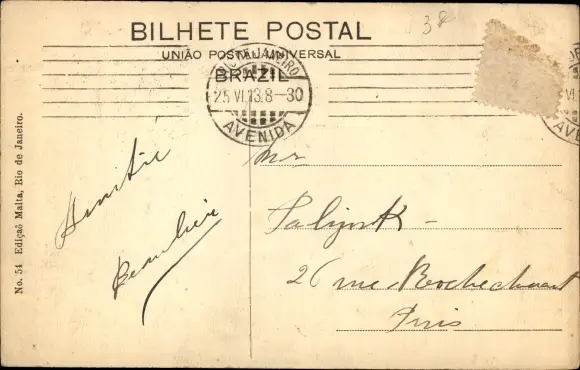 38
BILHETE POSTAL
UNIÃO POSTAL UNIVERSAL
BRAZIL
RIO DE JANEIRO
25 VI 13. 8-30
AVENIDA
No. 54 Edição Malta, Rio de Janeiro.
Mr
26 rue Rochechouart
Paris